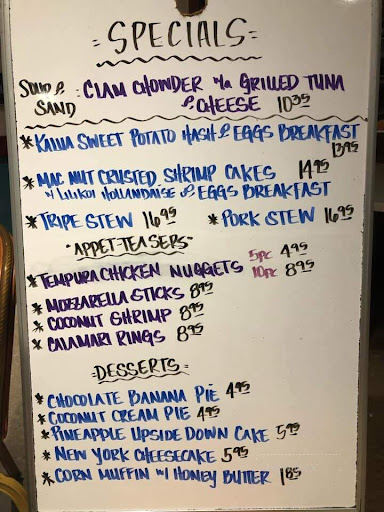 = SPECIALS =
SOUP &
SAND : CLAM CHOWDER W/ A GRILLED TUNA
& CHEESE 10.95
* KALUA SWEET POTATO HASH & EGGS BREAKFAST
13.95
* MAC NUT CRUSTED SHRIMP CAKES 14.95
W/ LILIKOI HOLLANDAISE & EGGS BREAKFAST
* TRIPE STEW 16.95 * PORK STEW 16.95
"APPET-TEASERS"
* TEMPURA CHICKEN NUGGETS 5PC 4.95
10PC 8.95
* MOZZARELLA STICKS 8.95
* COCONUT SHRIMP 8.95
* CALAMARI RINGS 8.95
- DESSERTS -
* CHOCOLATE BANANA PIE 4.95
* COCONUT CREAM PIE 4.95
* PINEAPPLE UPSIDE DOWN CAKE 5.95
* NEW YORK CHEESECAKE 5.95
* CORN MUFFIN W/ HONEY BUTTER 1.85